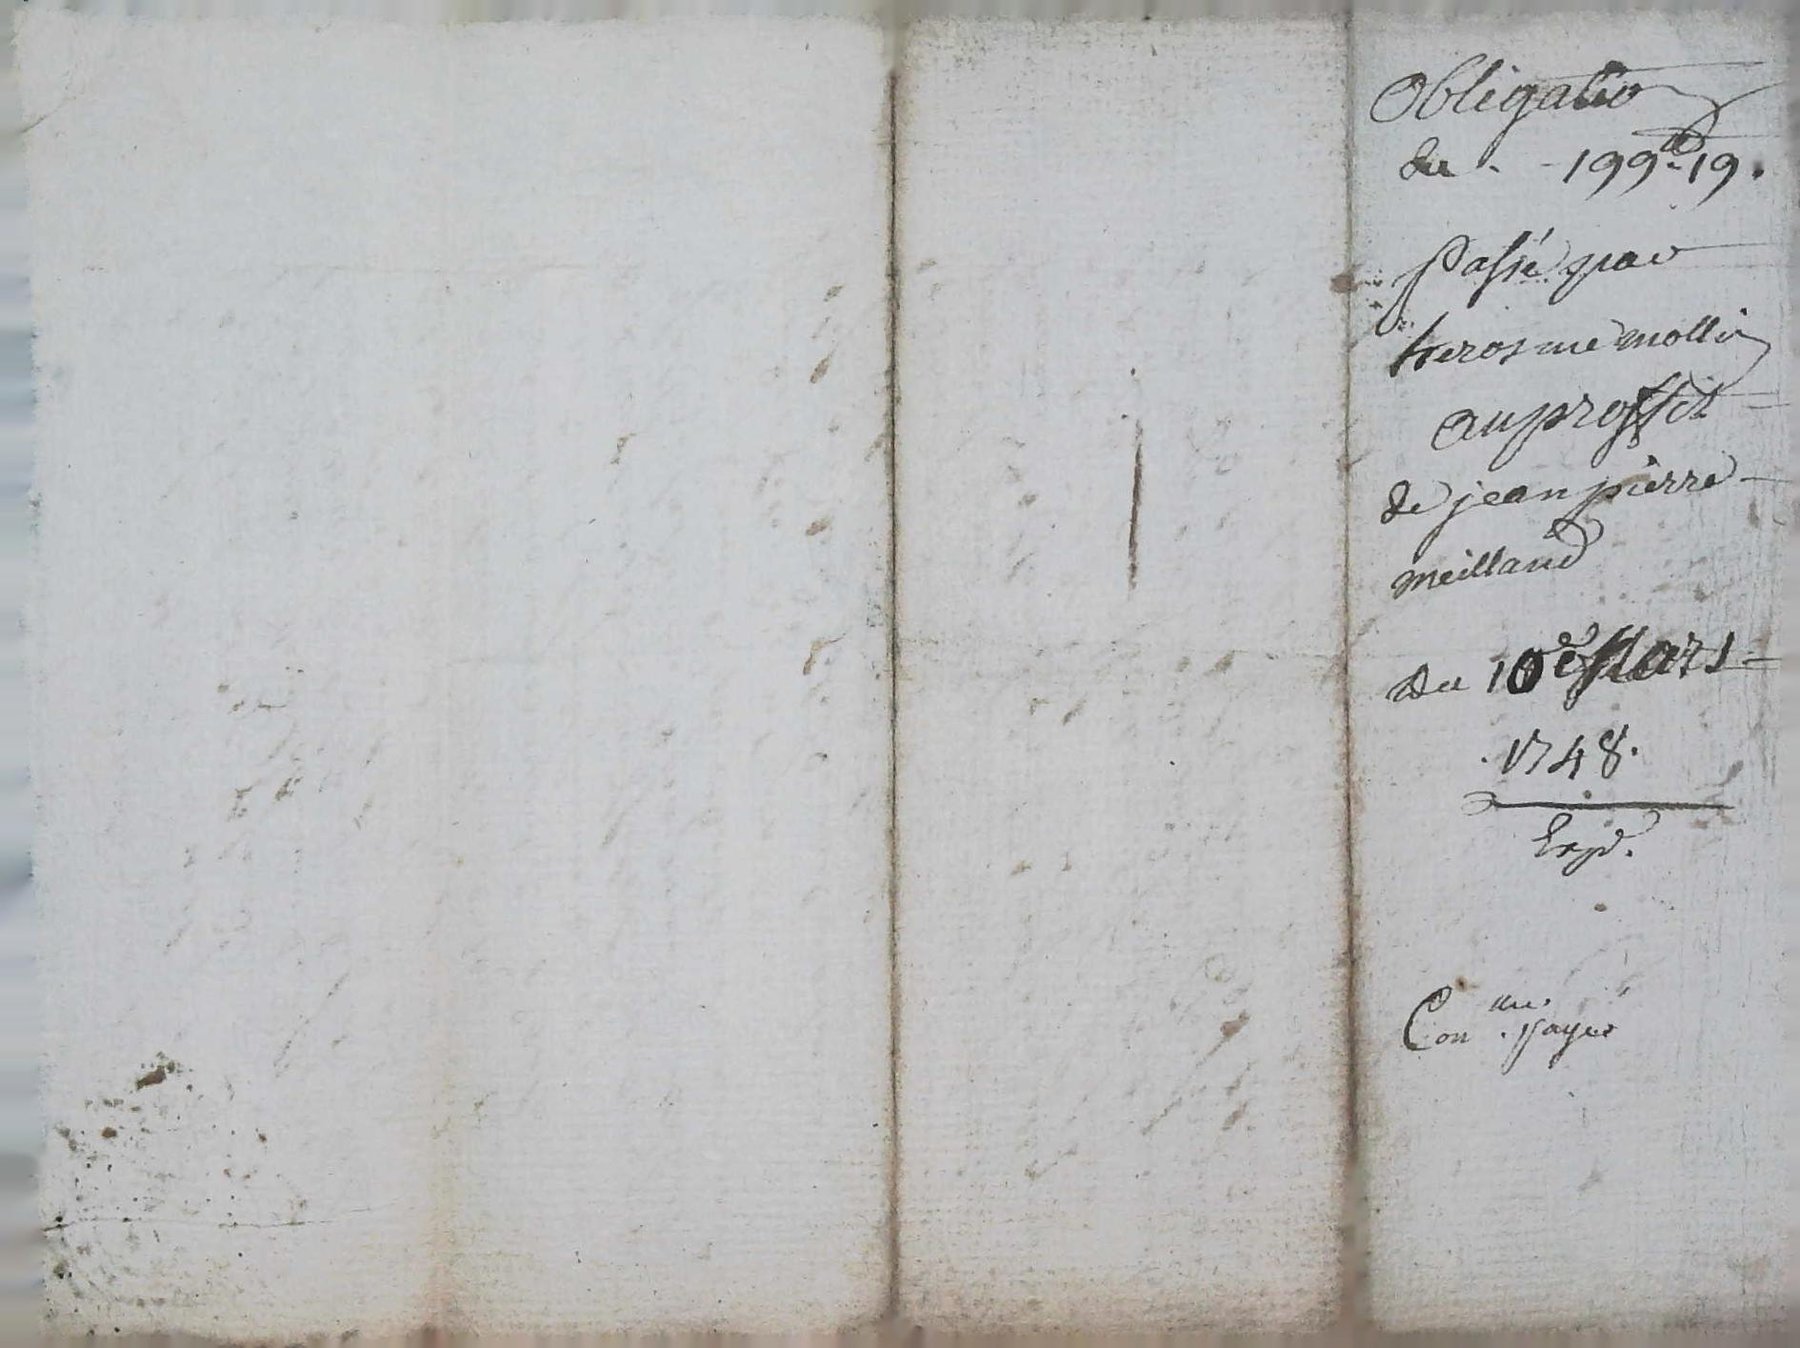 Obligatio
du - 199ᵗᵗ-19.
passé par
hierosme mollin
au proffit
de jean pierre
meilland
Du 10ᵉ Mars
.1748.
Exp.
Con payé